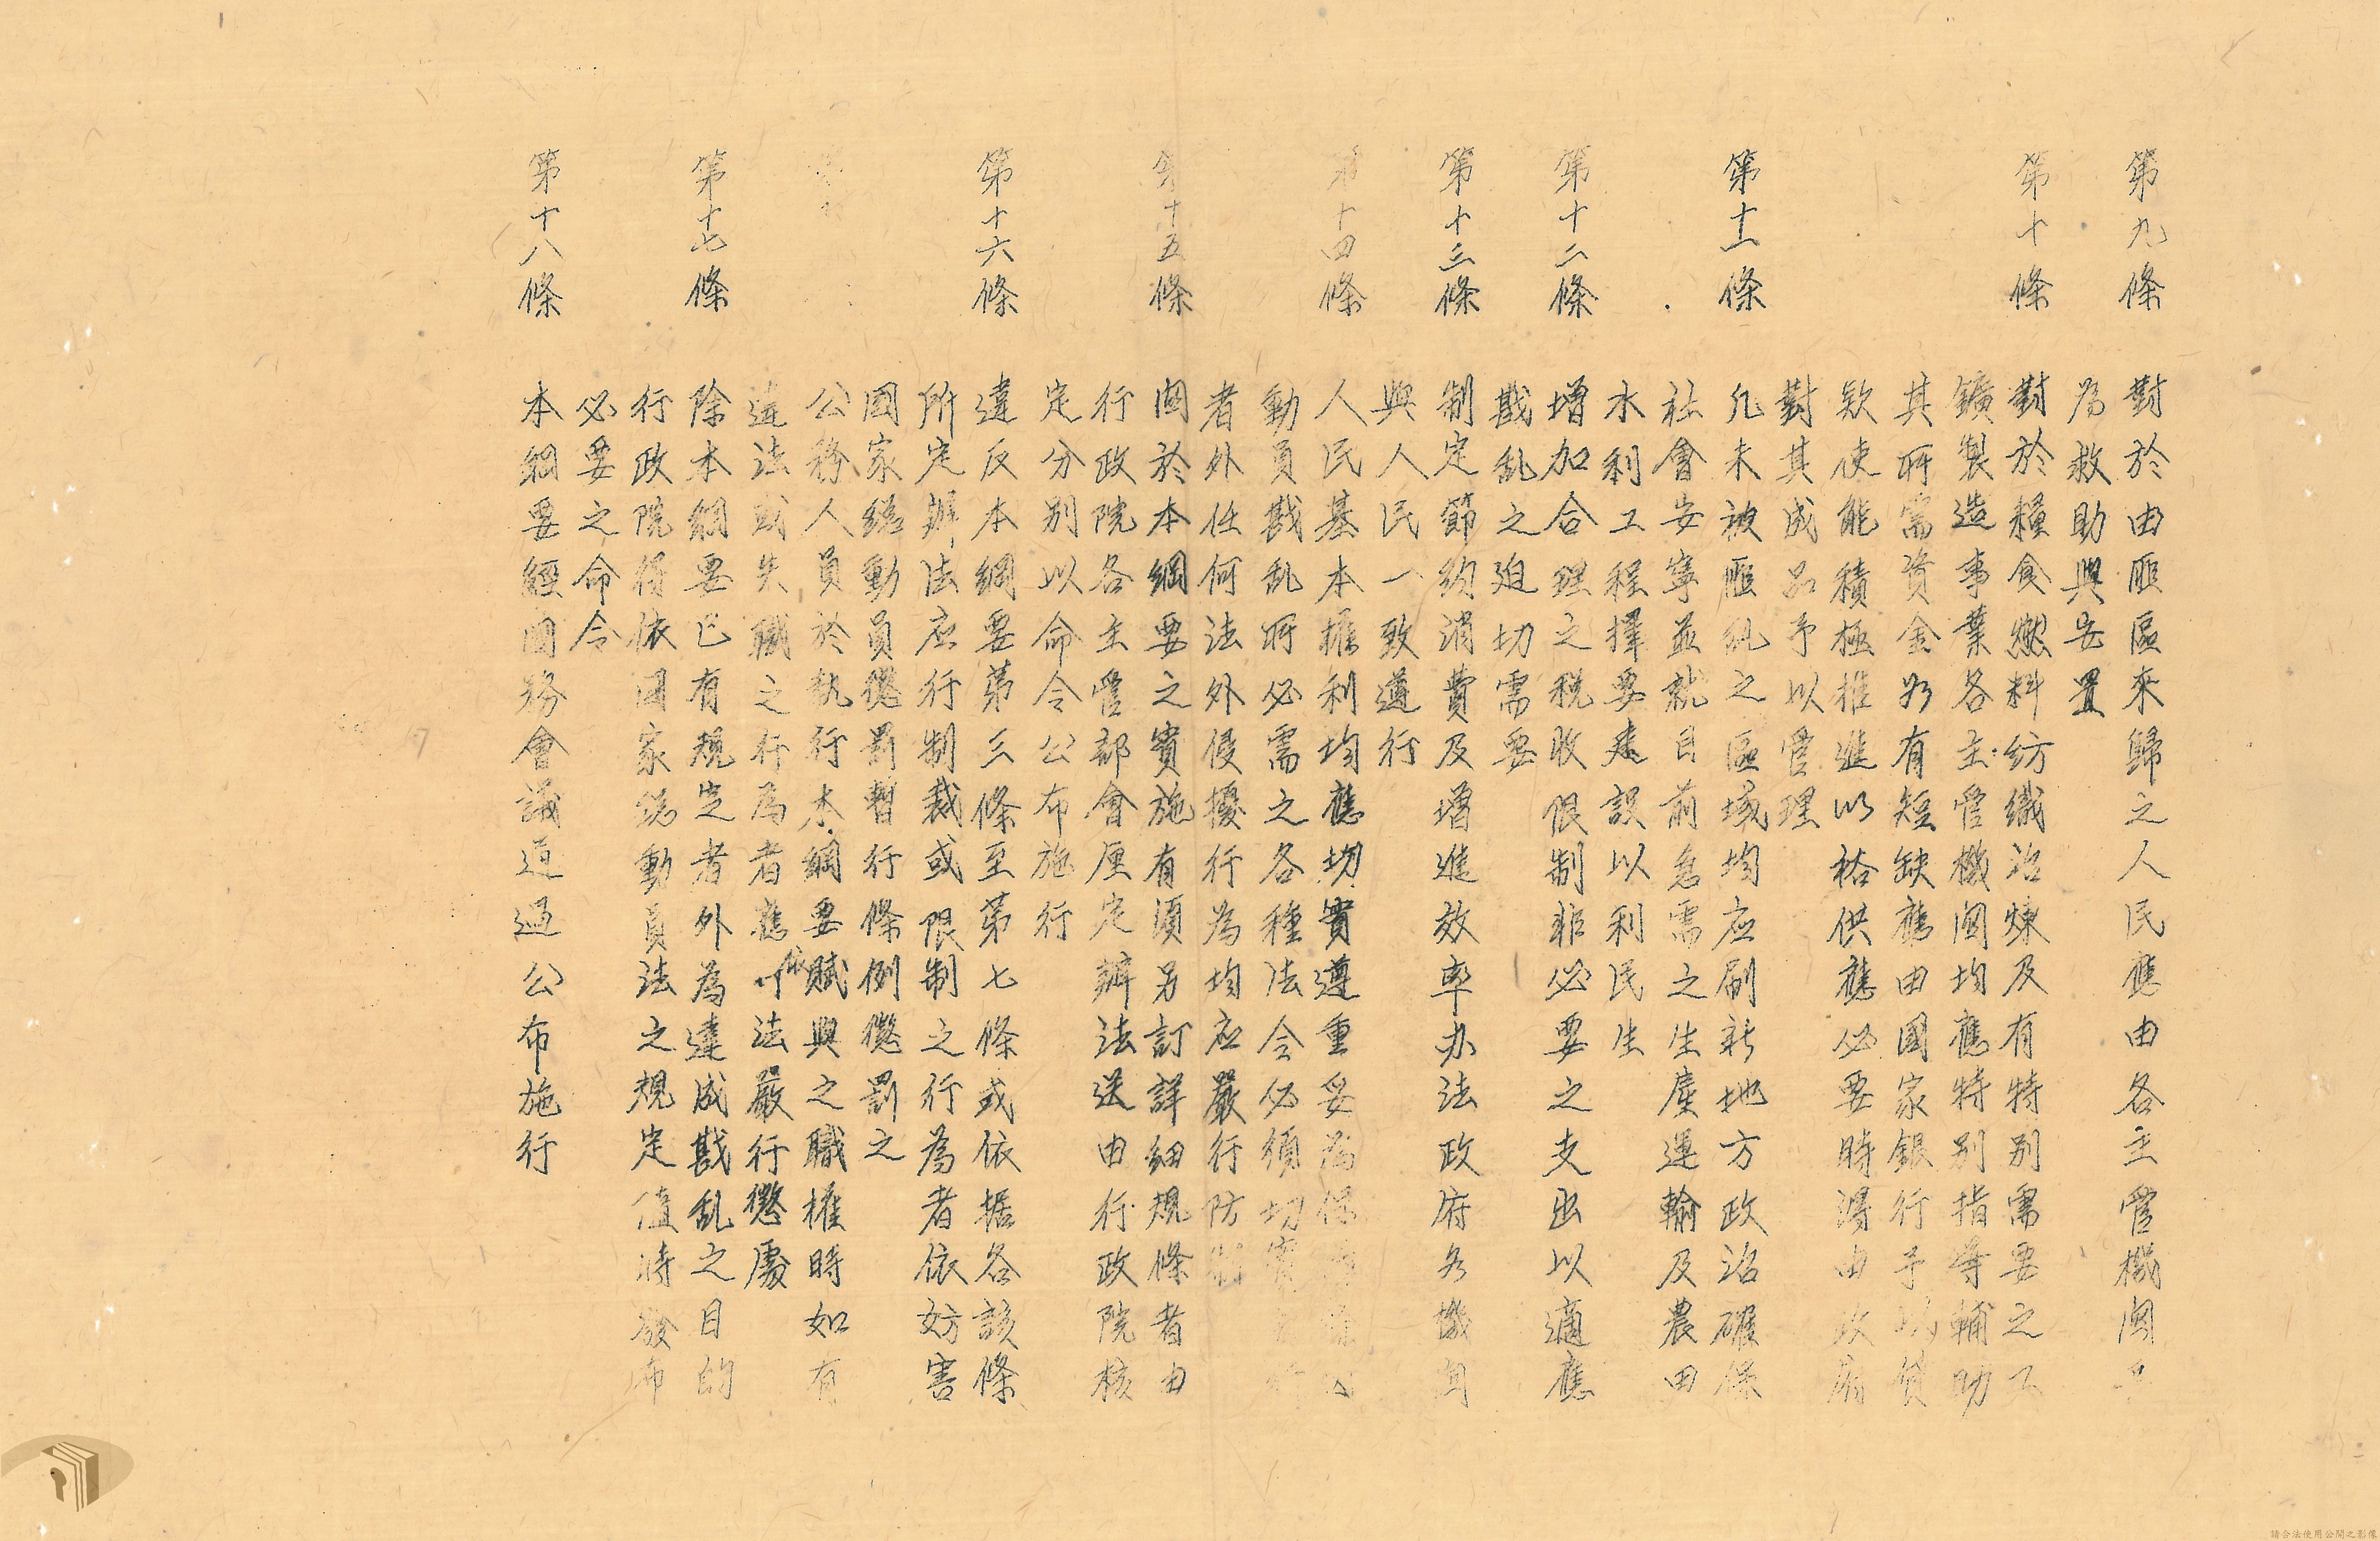 第九條 對於由匪區來歸之人民應由各主管機関
為救助與安置
第十條 對於糧食燃料紡織治煉及有特別需要之工
鑛製造事業各主管機関均應特別指導輔助
其所需資金如有短缺應由國家銀行予以貸
欵使能積極推進以裕供應必要時得由政府
對其成品予以管理
第十一條 凡未被匪亂之區域均应刷新地方政治確保
社會安寧並就目前急需之生產運輸及農田
水利工程擇要建設以利民生
第十二條 增加合理之税收限制非必要之支出以適應
戡乱之迫切需要
第十三條 制定節約消費及增進效率办法政府各機関
與人民一致遵行
第十四條 人民基本權利均應切實遵重妥為保
動員戡乱所必需之各種法令必須切實
者外任何法外侵擾行為均应嚴行防制
第十五條 関於本綱要之實施有須另訂詳細規條者由
行政院各主管部會厘定辦法送由行政院核
定分別以命令公布施行
第十六條 違反本綱要第三條至第七條或依据各該條
所定辦法应行制裁或限制之行為者依妨害
國家総動員懲罰暫行條例懲罰之
公務人員於執行本綱要賦與之職權時如有
違法或失職之行為者應依法嚴行懲處
第十七條 除本綱要已有規定者外為達成戡乱之目的
行政院得依国家総動員法之規定值時發布
必要之命令
第十八條 本綱要經国務會議通過公布施行
請合法使用公開之影像